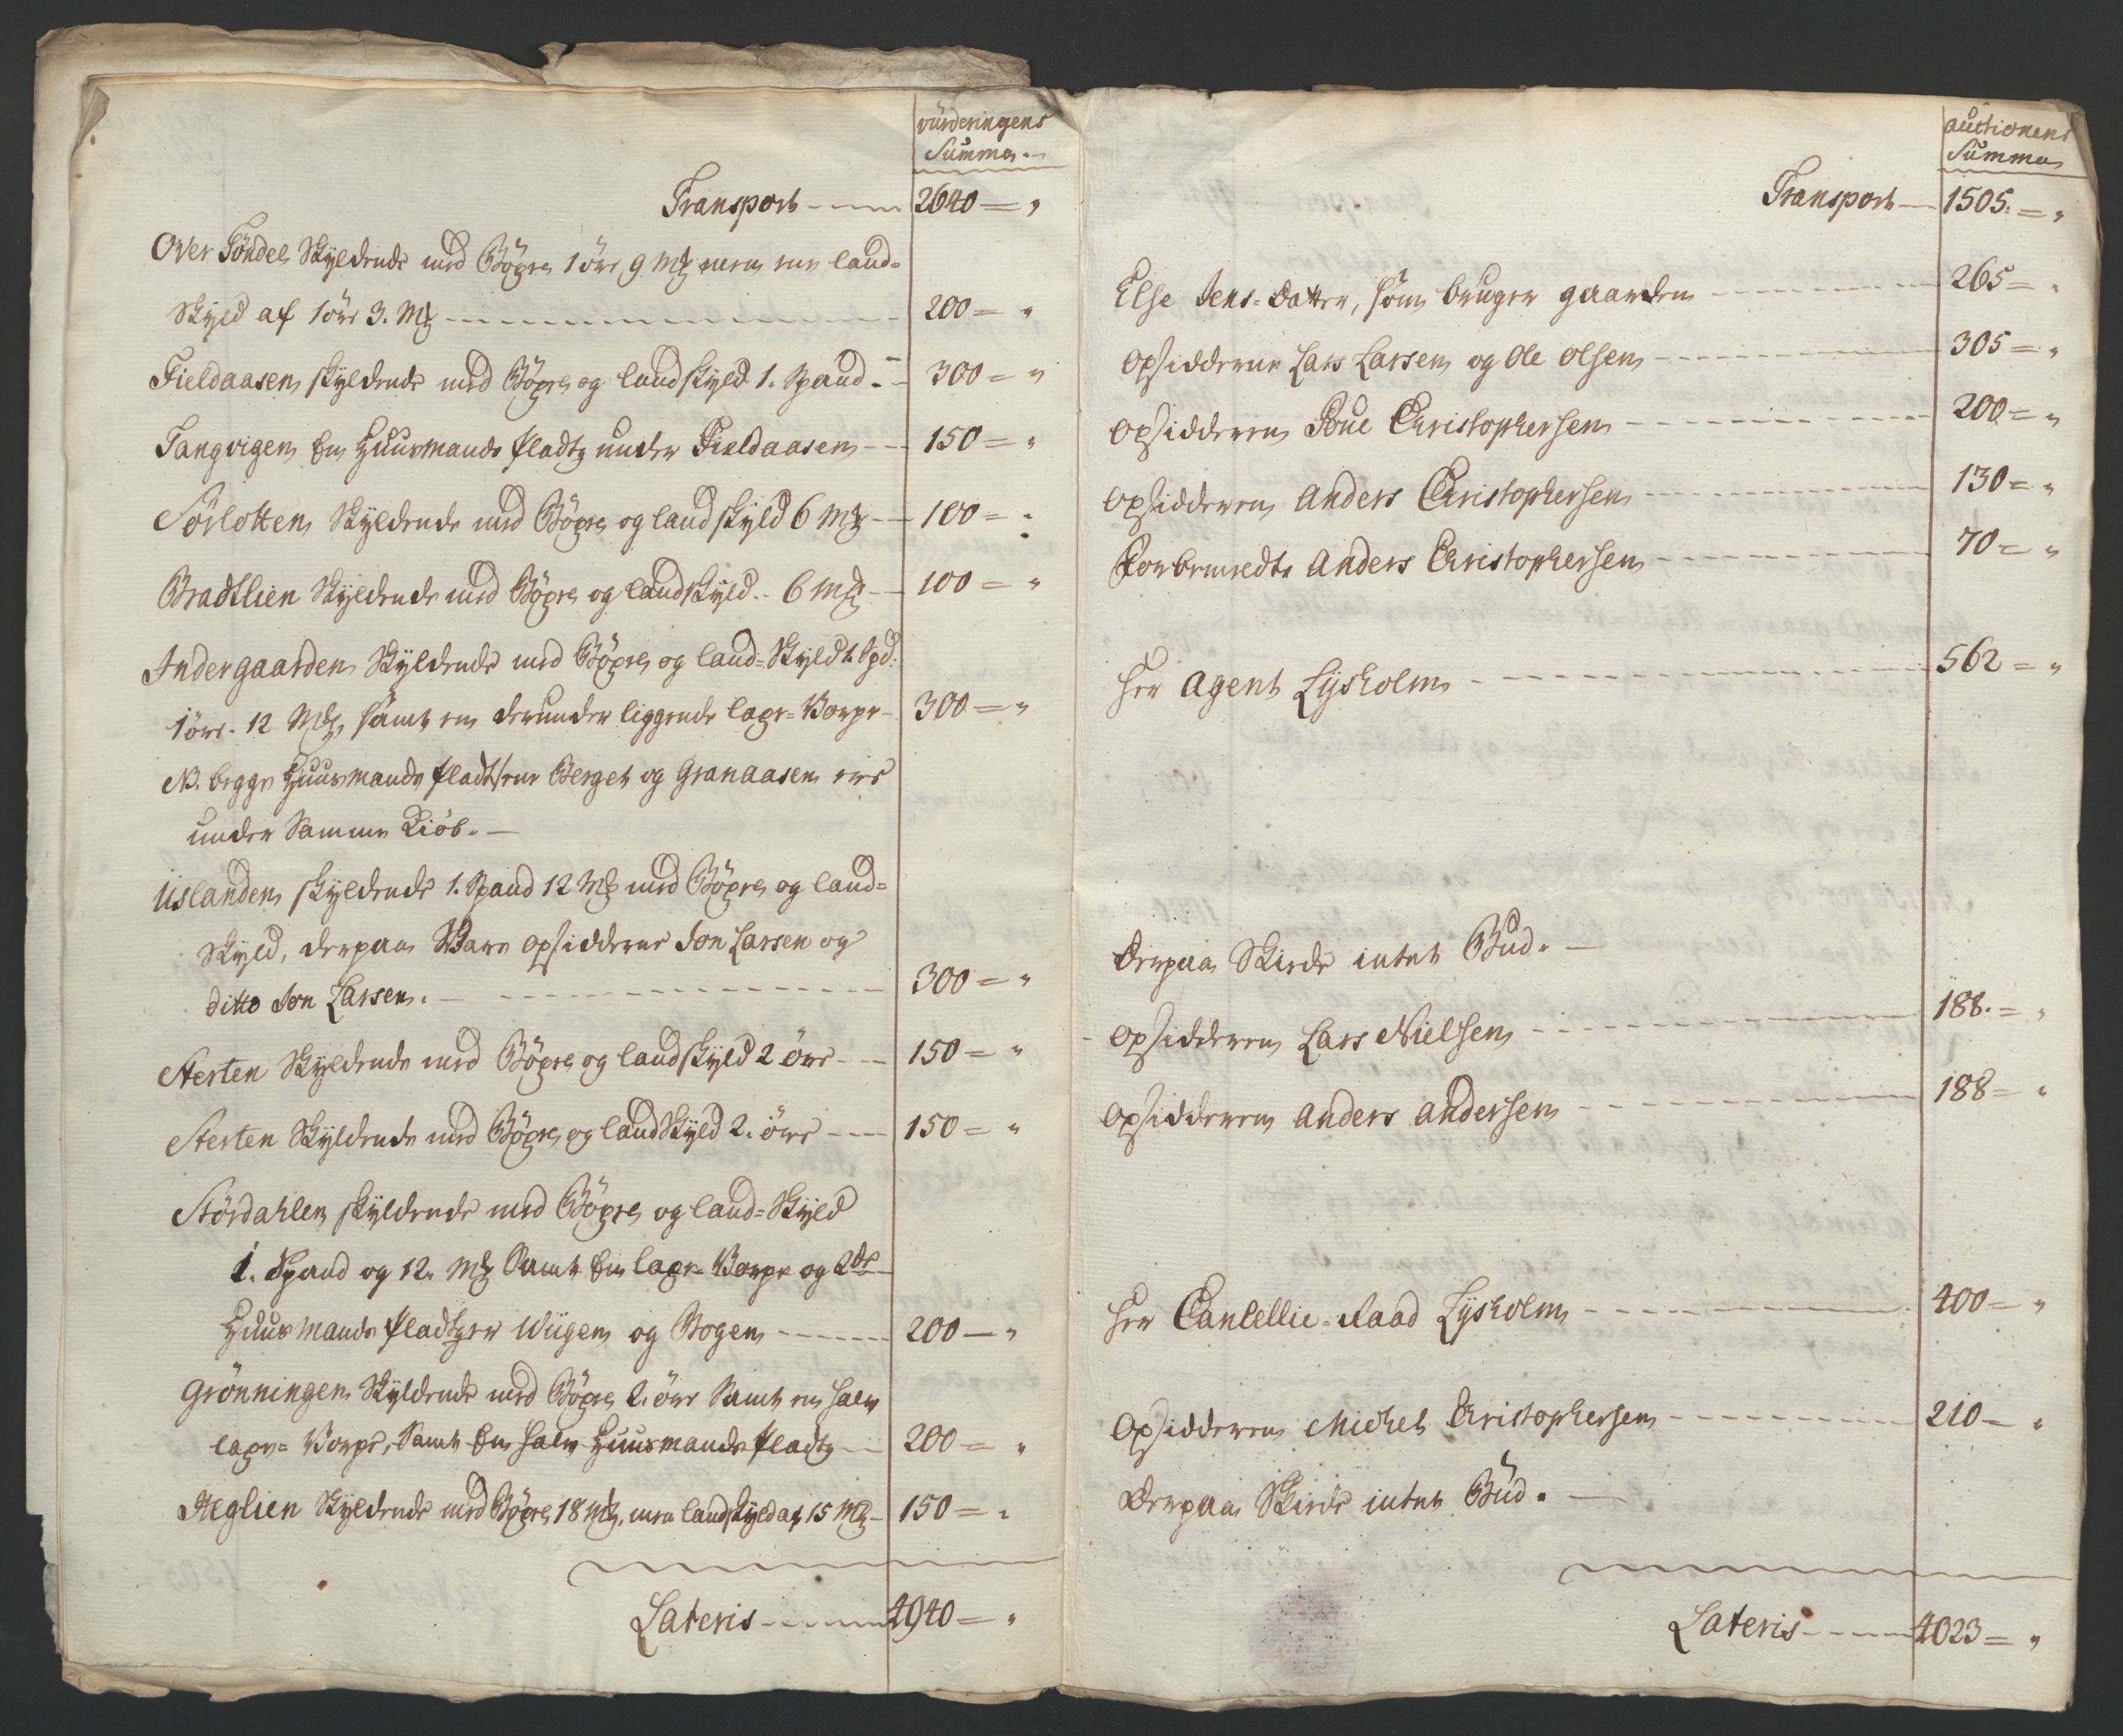 vürderingens
Summa.
Transport 2640 = "
Over Tøndel Skyldende med Bögsel 1 öre, 9 Mk men en land=
Skyld af 1 öre 3. Mk 200 = "
Fieldaasen skyldende med Bögsel og landskyld 1. Spand. 300 = "
Tangvigen En Huusmands Pladtz under Fieldaasen 150 = "
Sörlotten Skyldende med Bögsel og landskyld 6 Mk 100 = "
Bradtlien Skyldende med Bögsel og landskyld 6 Mk 100 = "
Indergaarden Skyldende med Bögsel og land=Skyld 1. Spd:
1 öre. 12 Mk, samt en derunder liggende laxe=Vorpe 300 = "
NB. begge Huusmands pladtsene Berget og Granaasen ere
under Samme Kiöb.
Uslanden skyldende 1. Spand 12 Mk med Bögsel og land=
Skyld, derpaa Vare opsiddere Jon Larsen og
ditto Jon Larsen. 300 = "
Sterten Skyldende med Bögsel og landskyld 2 öre 150 = "
Sterten Skyldende med Bögsel og landSkyld 2. öre 150 = "
Stördahlen skyldende med Bögsel og land=Skyld
1. Spand og 12. Mk Samt En laxe=Vorpe og 2de
Huusmands Pladtzer Wügen og Bogen 200 = "
Grönningen Skyldende med Bögsel 2. öre Samt en halv
laxe= Vorpe, Samt En halv Huusmands Pladtz 200 = "
Heglien Skyldende med Bögsel 18 Mk, men landskyld af 15 Mk 150 = "
Lateris 4940 = "
auctionens
Summa
Transport 1505. = "
Else Jens=Datter, som bruger gaarden 265 = "
opsidderne Lars Larsen og Ole Olsen 305 = "
opsidderen Poue Christophersen 200 = "
opsidderen Anders Christophersen 130 = "
Forbemeldte Anders Christophersen 70 = "
Herr Agent Lysholm 562 = "
Derpaa Skiede intet Bud.
opsidderen Lars Nielsen 188. = "
opsidderen Anders Andersen 188 = "
Herr Cancellie=Raad Lysholm 400 = "
Opsidderen Michel Christophersen 210 = "
Derpaa Skiede intet Bud.
Lateris 4023 = "